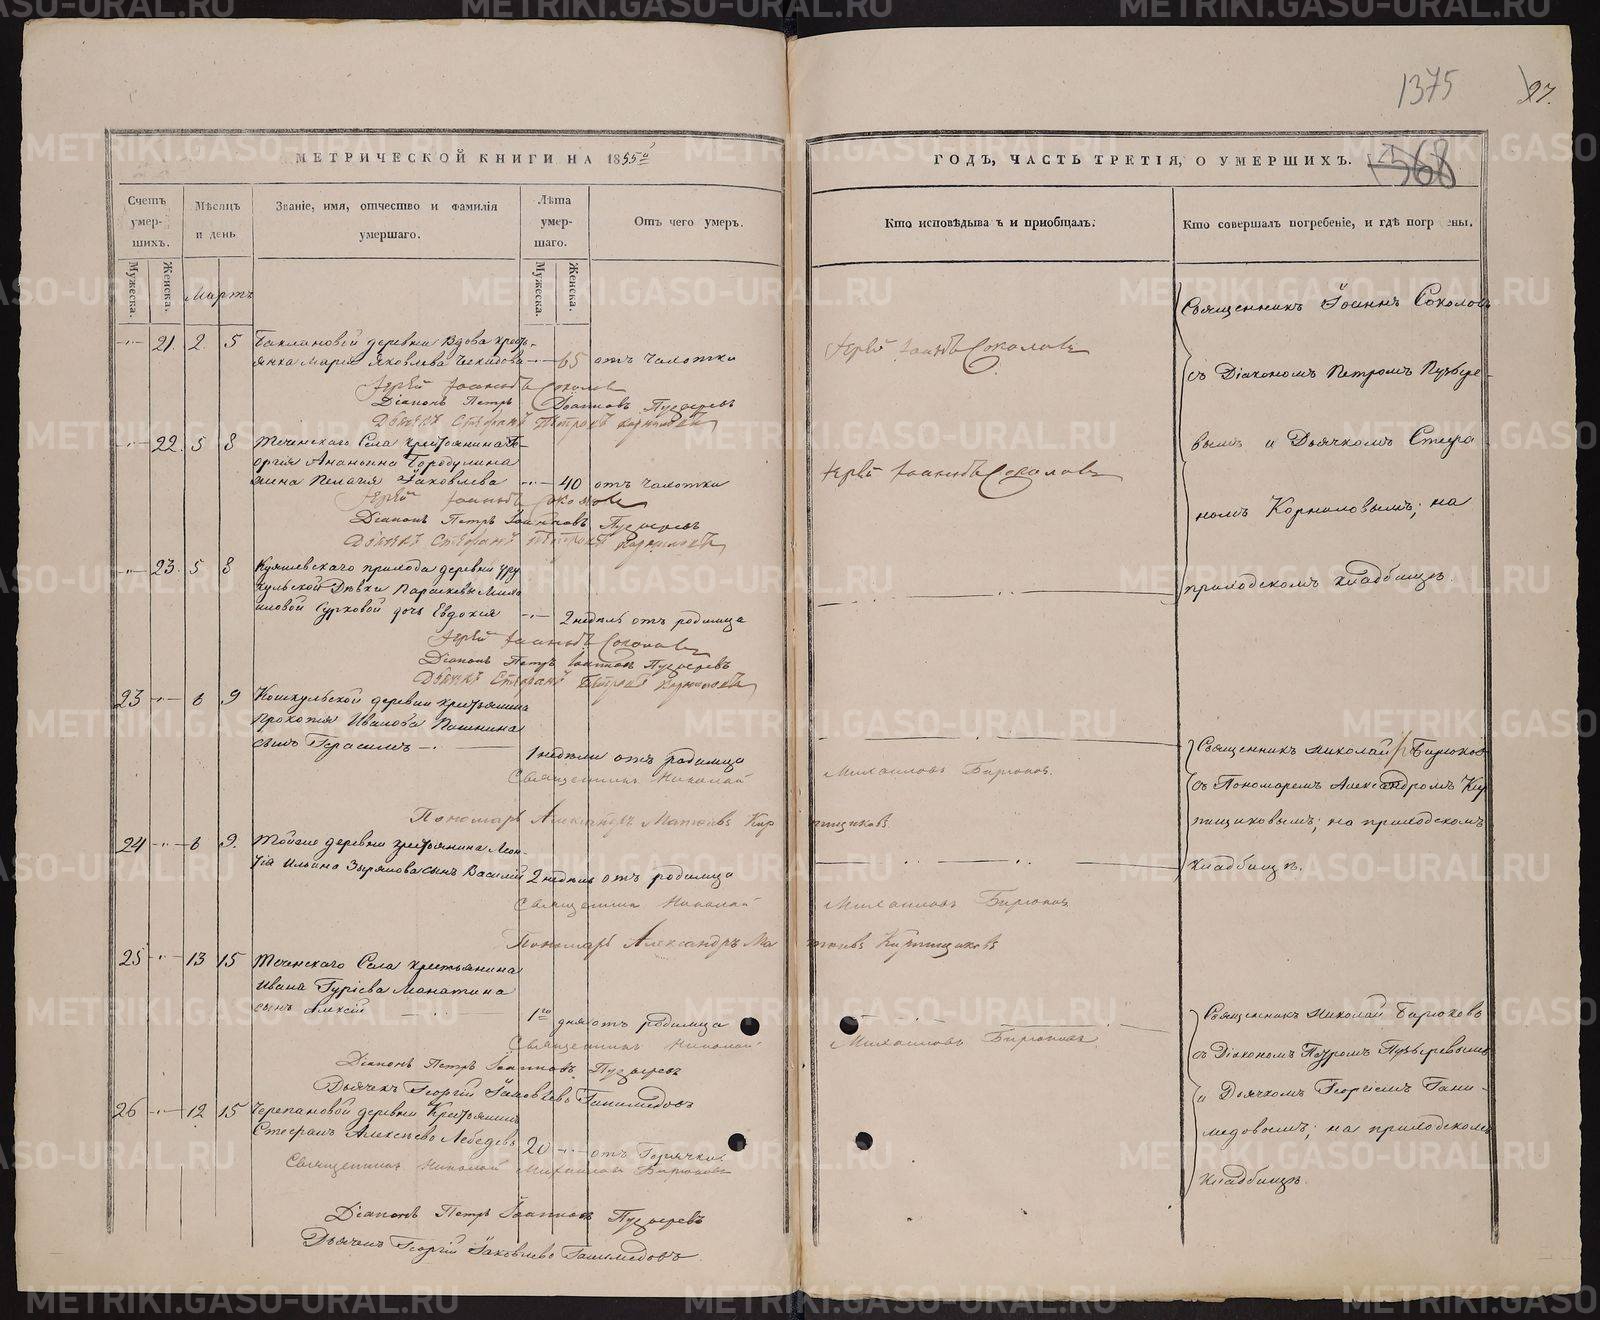 1375
27.
МЕТРИЧЕСКОЙ КНИГИ НА 1855й
ГОДЪ, ЧАСТЬ ТРЕТІЯ, О УМЕРШИХЪ.
1368
Счетъ умер-шихъ.
Мѣсяцъ и день
Званіе, имя, отчество и фамилія умершаго.
Лѣта умер-шаго.
Отъ чего умеръ.
Кто исповѣдывалъ и пріобщалъ.
Кто совершалъ погребеніе, и гдѣ погребены.
Мужеска.
Женска.
Мартъ
Мужеска.
Женска.
21. 2. 5 Баклановой деревни Вдова кресть-
янка Марія Яковлева 65 отъ чахотки
Іерей Іоаннъ Соколовъ
Іерей Іоаннъ Соколовъ
Діаконъ Петръ Іоанновъ Пузыревъ
Дьячекъ Стефанъ Петровъ Корниловъ
22. 5 8 Теченскаго Села крестьянина Ге-
оргія Ананьина Городулина
жена Пелагія Яковлева 40 отъ чахотки
Іерей Іоаннъ Соколовъ
Іерей Іоаннъ Соколовъ
Діаконъ Петръ Іоанновъ Пузыревъ
Дьячекъ Стефанъ Петровъ Корниловъ
Священникъ Іоаннъ Соколовъ
съ Діакономъ Петромъ Пузыре-
вымъ и Дьячкомъ Стефа
номъ Корниловымъ; на
приходскомъ кладбищѣ.
23. 5 8 Куяшевскаго прихода деревни Уру
кульской Дѣвки Параскевы Миха
иловой Сурковой дочь Евдокія 2 недѣль отъ родимца
Іерей Іоаннъ Соколовъ
Діаконъ Петръ Іоанновъ Пузыревъ
Дьячекъ Стефанъ Петровъ Корниловъ
23 6 9 Кошкульской деревни крестьянина
Прокопія Иванова Пашнина
сынъ Герасимъ 1 недѣли отъ родимца
Священникъ Николай Михаиловъ Бирюковъ.
Пономарь Александръ Матѳіевъ Кирпищиковъ
24 6 9. Той же деревни крестьянина Леон-
тія Ильина Зырянова сынъ Василій 2 недѣль отъ родимца
Священникъ Николай Михаиловъ Бирюковъ.
Пономарь Александръ Матѳіевъ Кирпищиковъ
Священникъ Николай Бирюковъ
съ Пономаремъ Александромъ Кир
пищиковымъ; на приходскомъ
кладбищѣ.
25 13 15 Теченскаго Села крестьянина
Ивана Гуріева Манатина
сынъ Алексій 1го дня отъ родимца
Священникъ Николай Михаиловъ Бирюковъ.
Діаконъ Петръ Іоанновъ Пузыревъ
Дьячекъ Георгій Яковлевъ Ганимедовъ
26 12 15 Черепановой деревни Крестьянинъ
Стефанъ Алексѣевъ Лебедевъ 20 отъ Горячки
Священникъ Николай Михаиловъ Бирюковъ
Діаконъ Петръ Іоанновъ Пузыревъ
Дьячекъ Георгій Яковлевъ Ганимедовъ.
Священникъ Николай Бирюковъ
съ Діакономъ Петромъ Пузыревымъ
и Дьячкомъ Георгіемъ Гани-
медовымъ; на приходскомъ
кладбищѣ.
METRIKI.GASO-URAL.RU